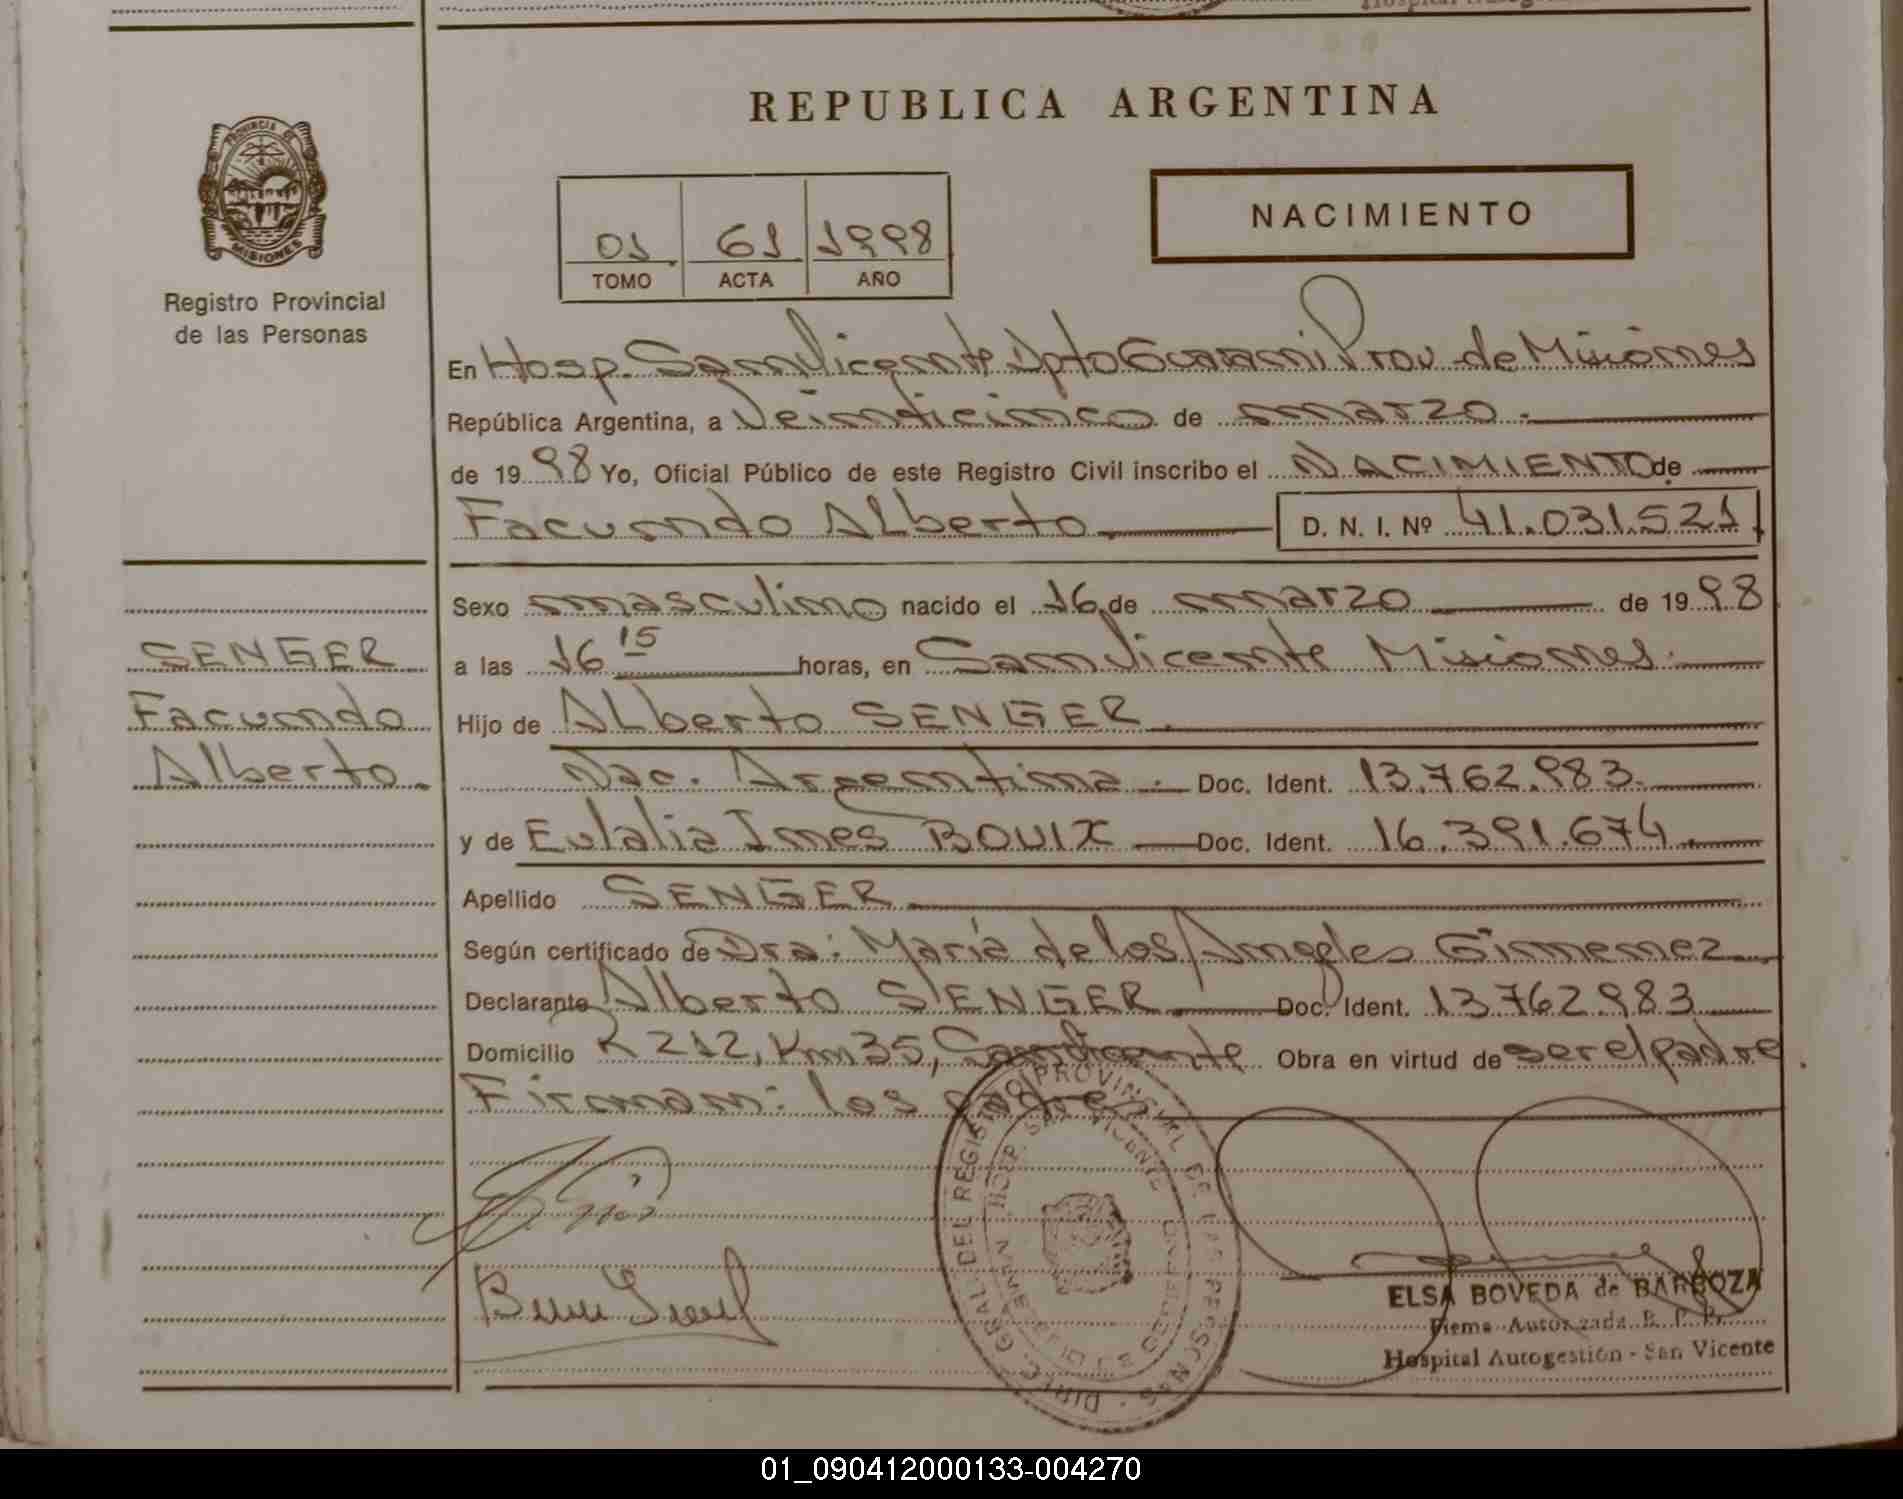 REPUBLICA ARGENTINA
PROVINCIA DE
MISIONES
Registro Provincial
de las Personas
01 61 1998
TOMO ACTA AÑO
NACIMIENTO
En Hosp. San Vicente Dpto Guarani Prov. de Misiones
República Argentina, a Veinticinco de marzo.
de 19 98 Yo, Oficial Público de este Registro Civil inscribo el NACIMIENTO de
Facundo Alberto D. N. I. Nº 41.031.521
Sexo masculino nacido el 16 de marzo de 19 98
a las 16 15 horas, en San Vicente Misiones.
Hijo de Alberto SENGER.
Nac. Argentina. Doc. Ident. 13.762.983.
y de Eulalia Ines BOUIX Doc. Ident. 16.391.674.
Apellido SENGER
Según certificado de Dra: María de los Angeles Gimenez
Declarante Alberto SENGER Doc. Ident. 13.762.983
Domicilio R 212, Km 35, San Vicente Obra en virtud de ser el padre.
Firman: los padres
SENGER
Facundo
Alberto.
DIREC. GRAL. DEL REGISTRO PROVINCIAL DE LAS PERSONAS
HOSP. SAN VICENTE
ELSA BOVEDA de BARBOZA
Firma Autorizada R. P. P.
Hospital Autogestión - San Vicente
01_090412000133-004270